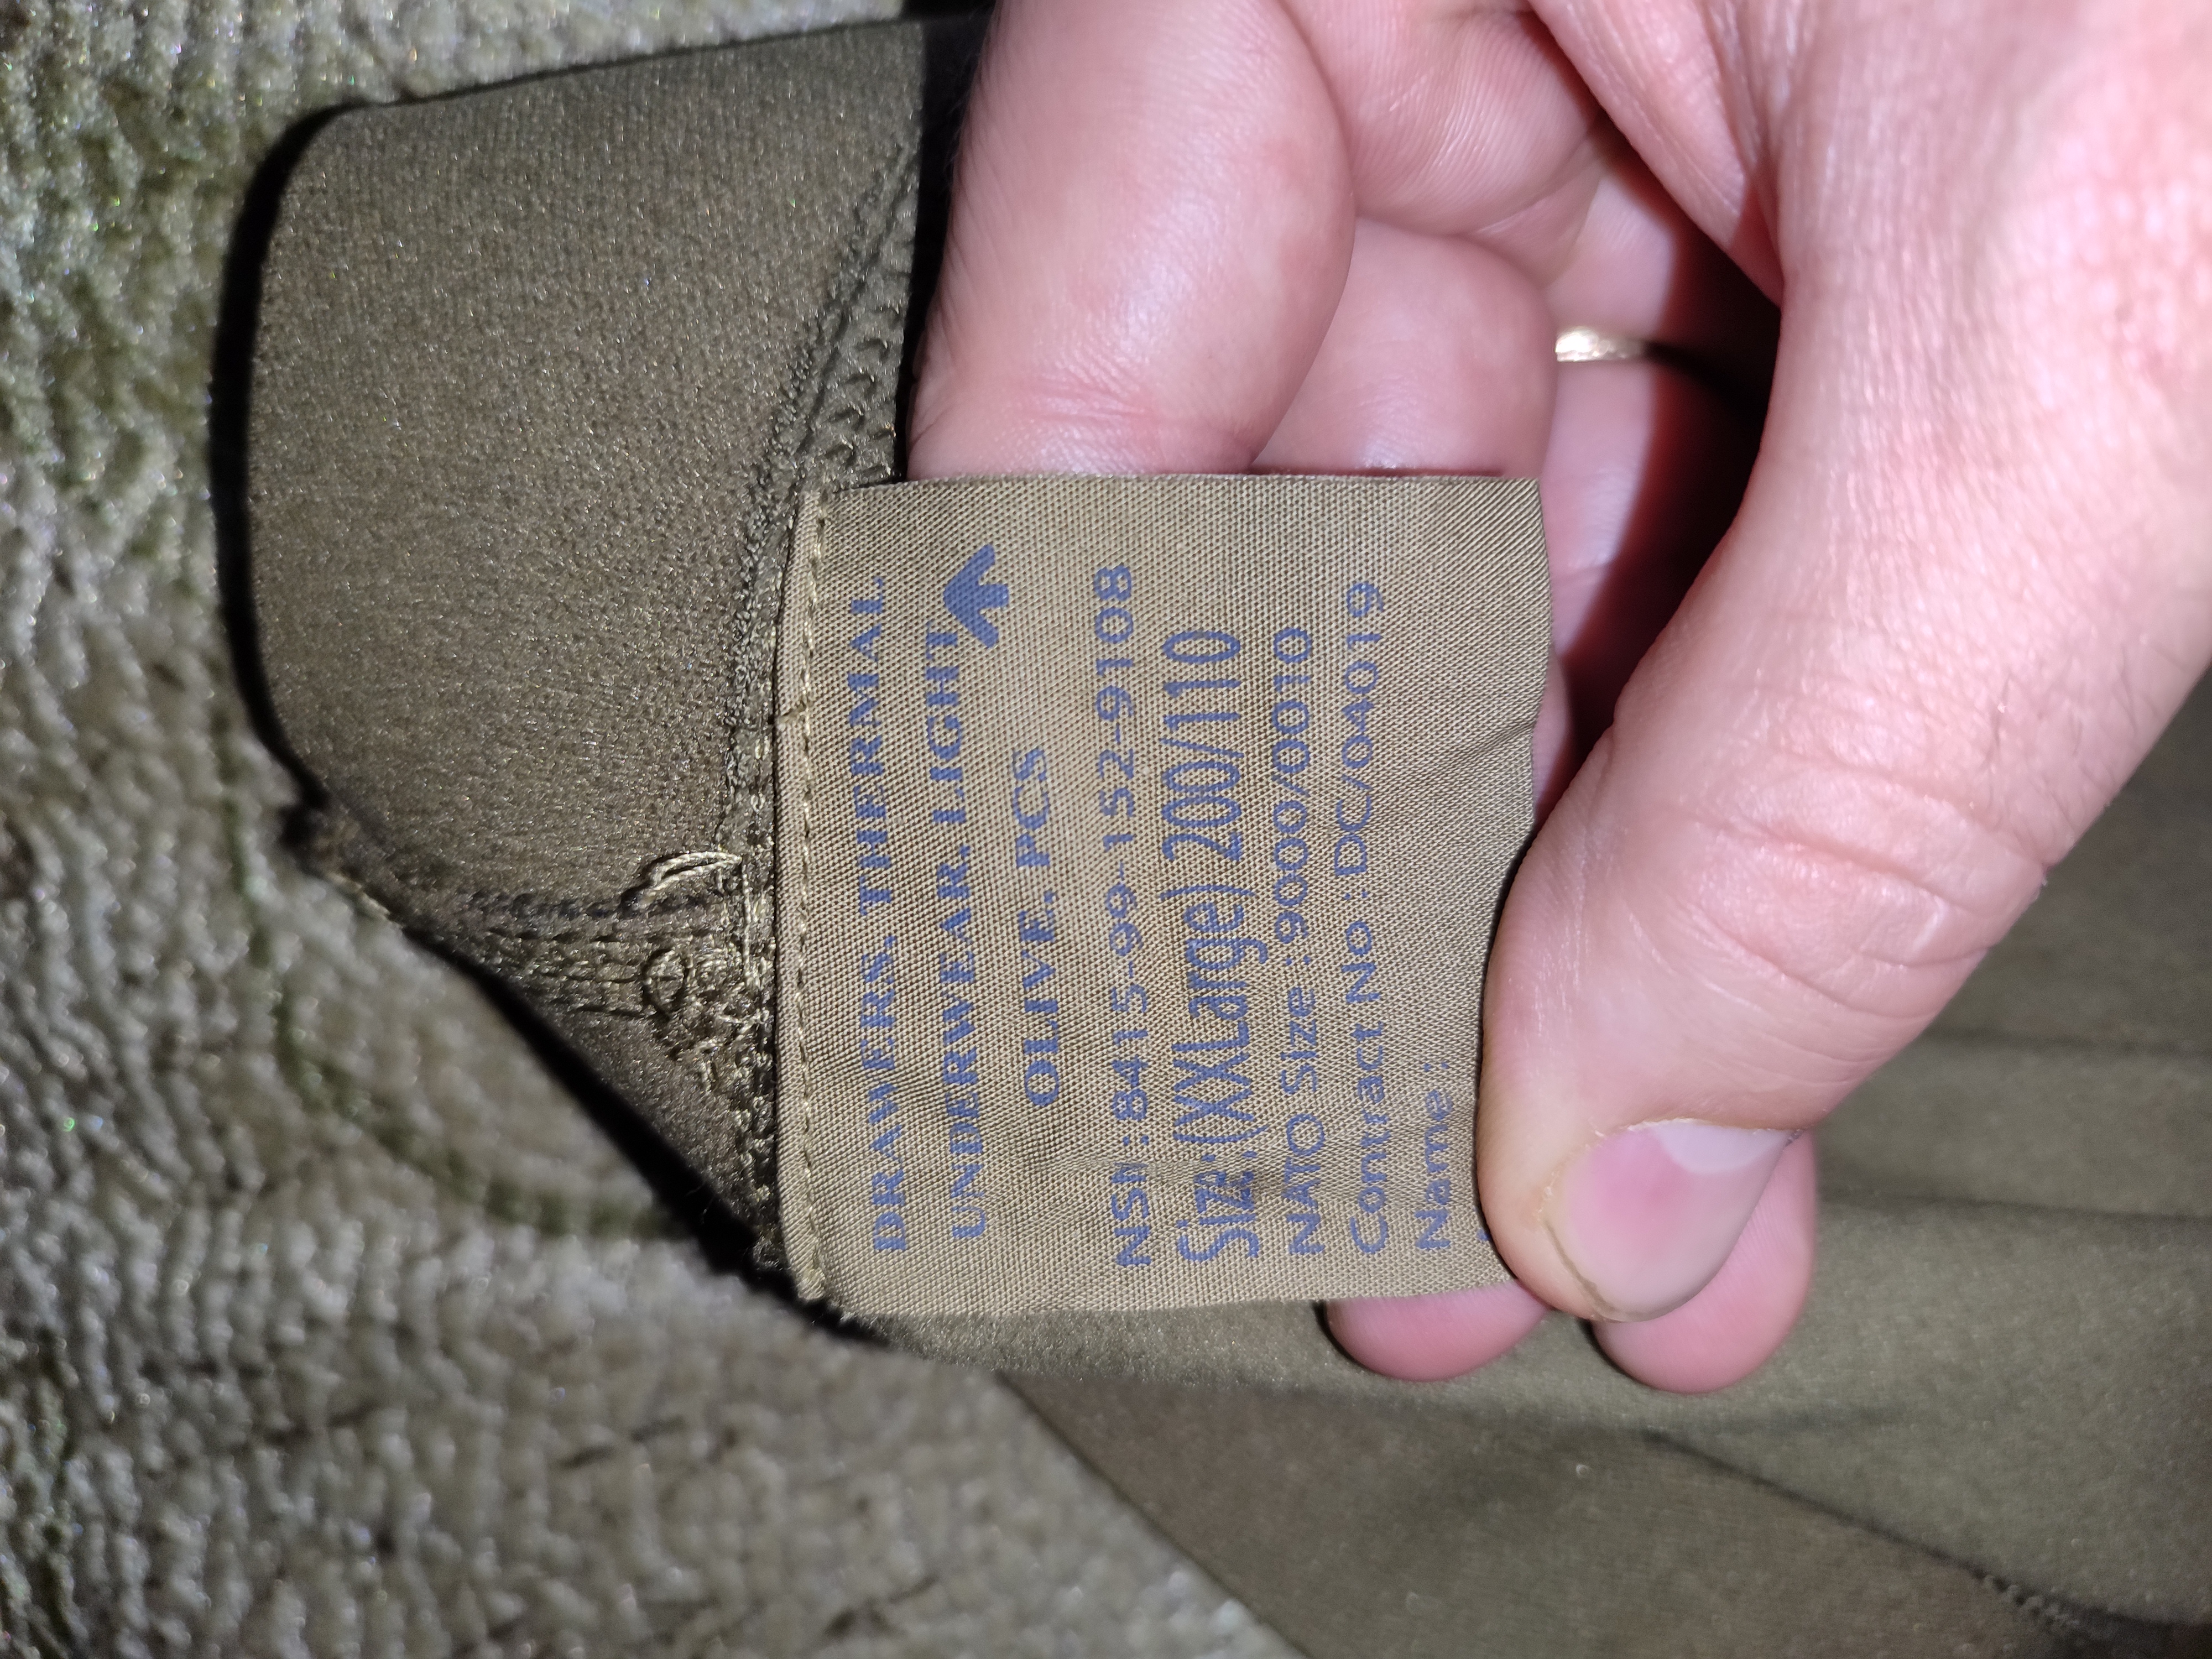 DRAWERS, THERMAL
UNDERWEAR, LIGHT
OLIVE, PCS
NSN :8415-99-152-9108
Size:(XXLarge) 200/110
NATO Size :9000/0010
Contract No :DC/04019
Name :